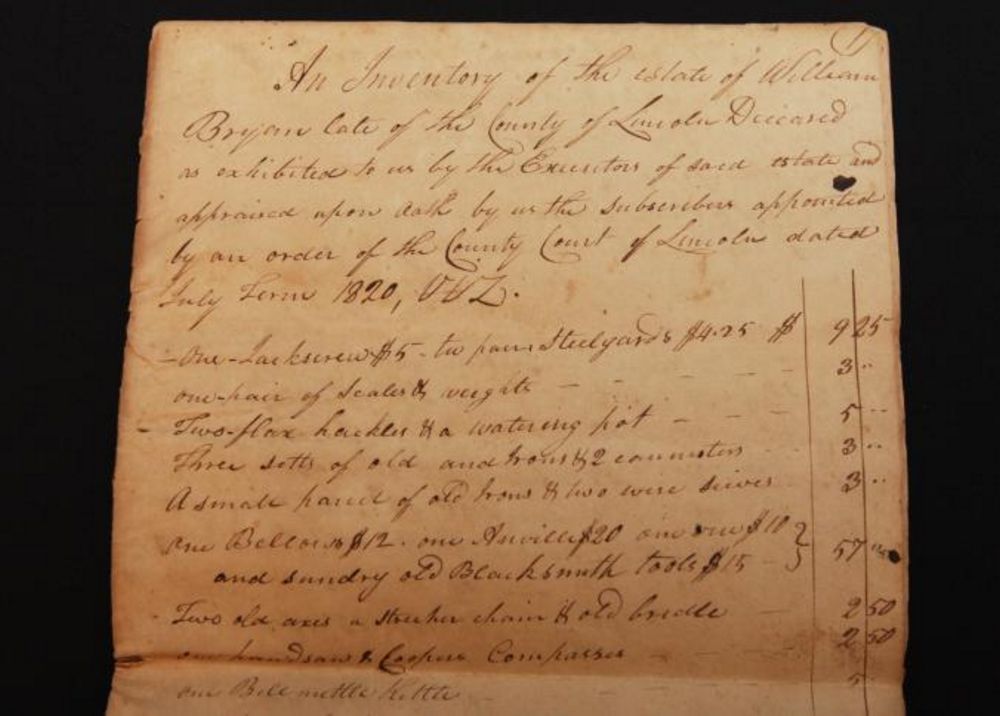 An Inventory of the estate of William
Bryan late of the County of Lincoln Deceased
as exhibited to us by the Executors of said estate and
appraised upon Oath by us the Subscribers appointed
by an order of the County Court of Lincoln dated
July Term 1820, VIZ.
one Jackscrew $5 - two pair Steelyards $4.25 $ 9 25
one pair of Scales & weights - - - - - 3 ..
Two flax hackles & a watering pot - - - - 5 ..
Three setts of old and Irons & 2 cannisters - - 3 ..
A small parcel of old Irons & two wire sieves - 3 ..
one Bellows $12. one Anville $20 one $10 }
and sundry old Blacksmith tools $15 - } 57 ..
Two old axes a chain & old bridle - 2 50
one handsaw & Coopers Compasses - - - 2 50
one Bell mettle Kettle - - - 5